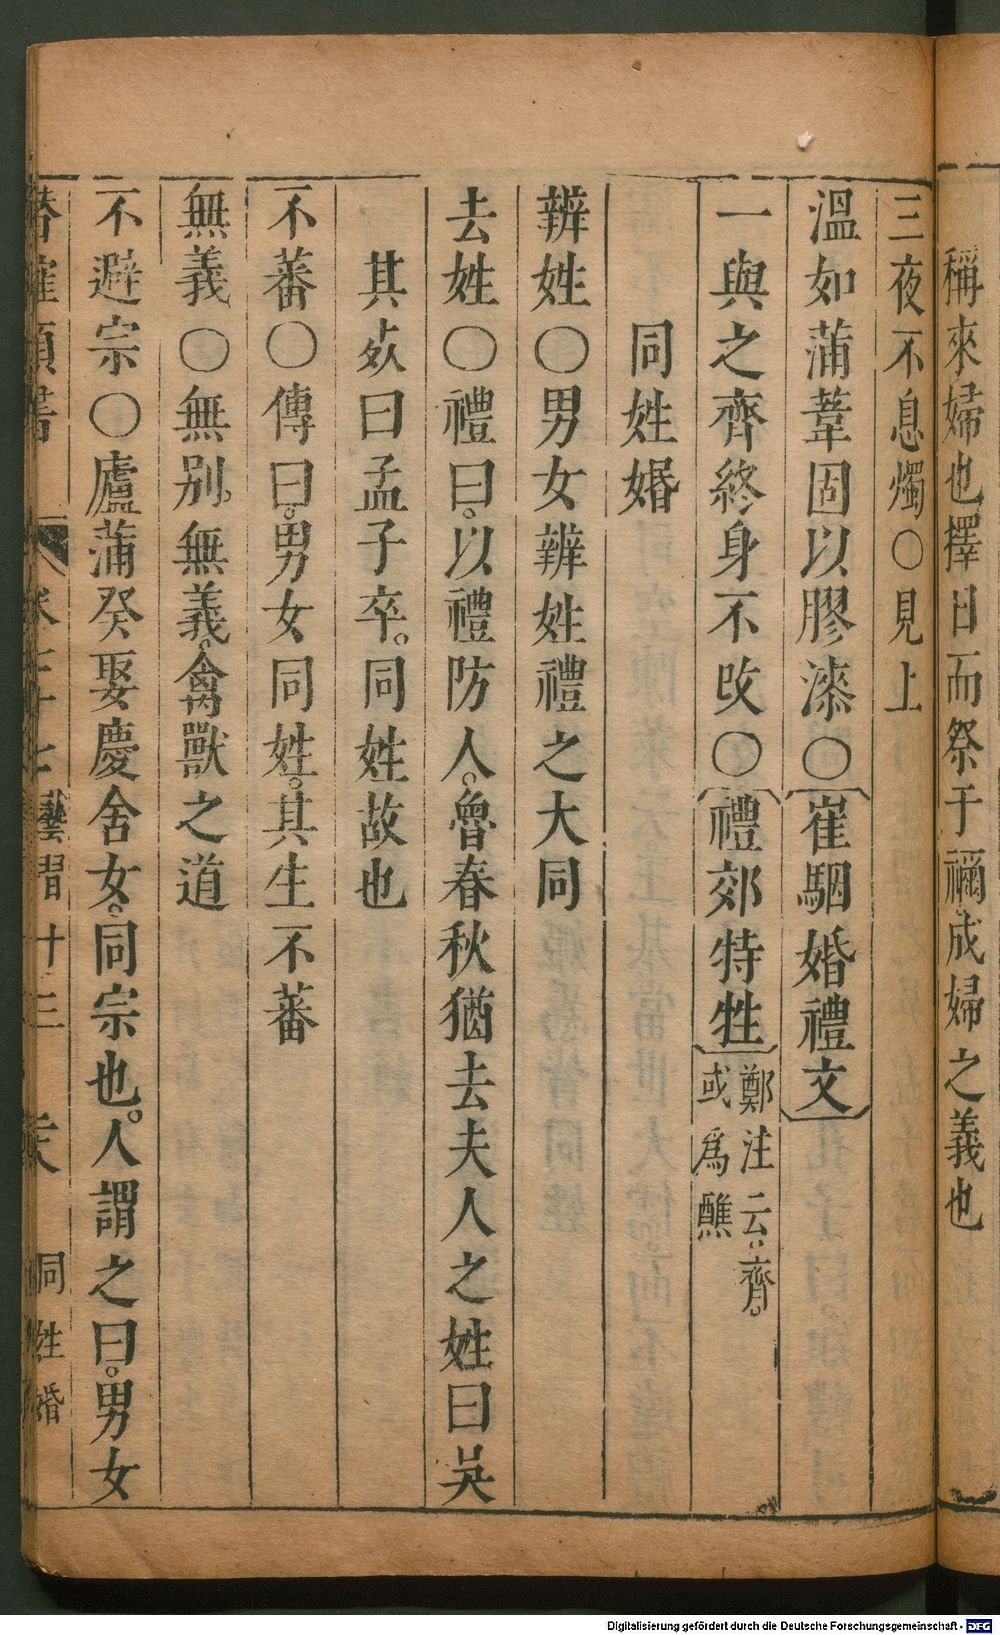 稱來婦也擇日而祭于禰成婦之義也
三夜不息燭〇見上
溫如蒲葦固以膠漆〇崔駰婚禮文
一與之齊終身不改〇禮郊特牲鄭注云齊。或爲醮
同姓婚
辨姓〇男女辨姓禮之大同
去姓〇禮曰。以禮防人。魯春秋猶去夫人之姓曰吳
其㱙曰孟子卒。同姓故也
不蕃〇傳曰。男女同姓。其生不蕃
無義〇無別。無義。禽獸之道
不避宗〇廬蒲癸娶慶舍女。同宗也。人謂之曰。男女
卷三十七 十三 同姓婚
Digitalisierung gefördert durch die Deutsche Forschungsgemeinschaft - DFG